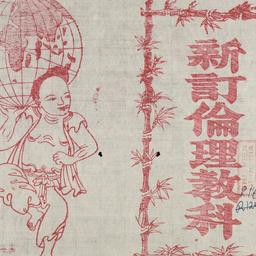 新訂倫理教科